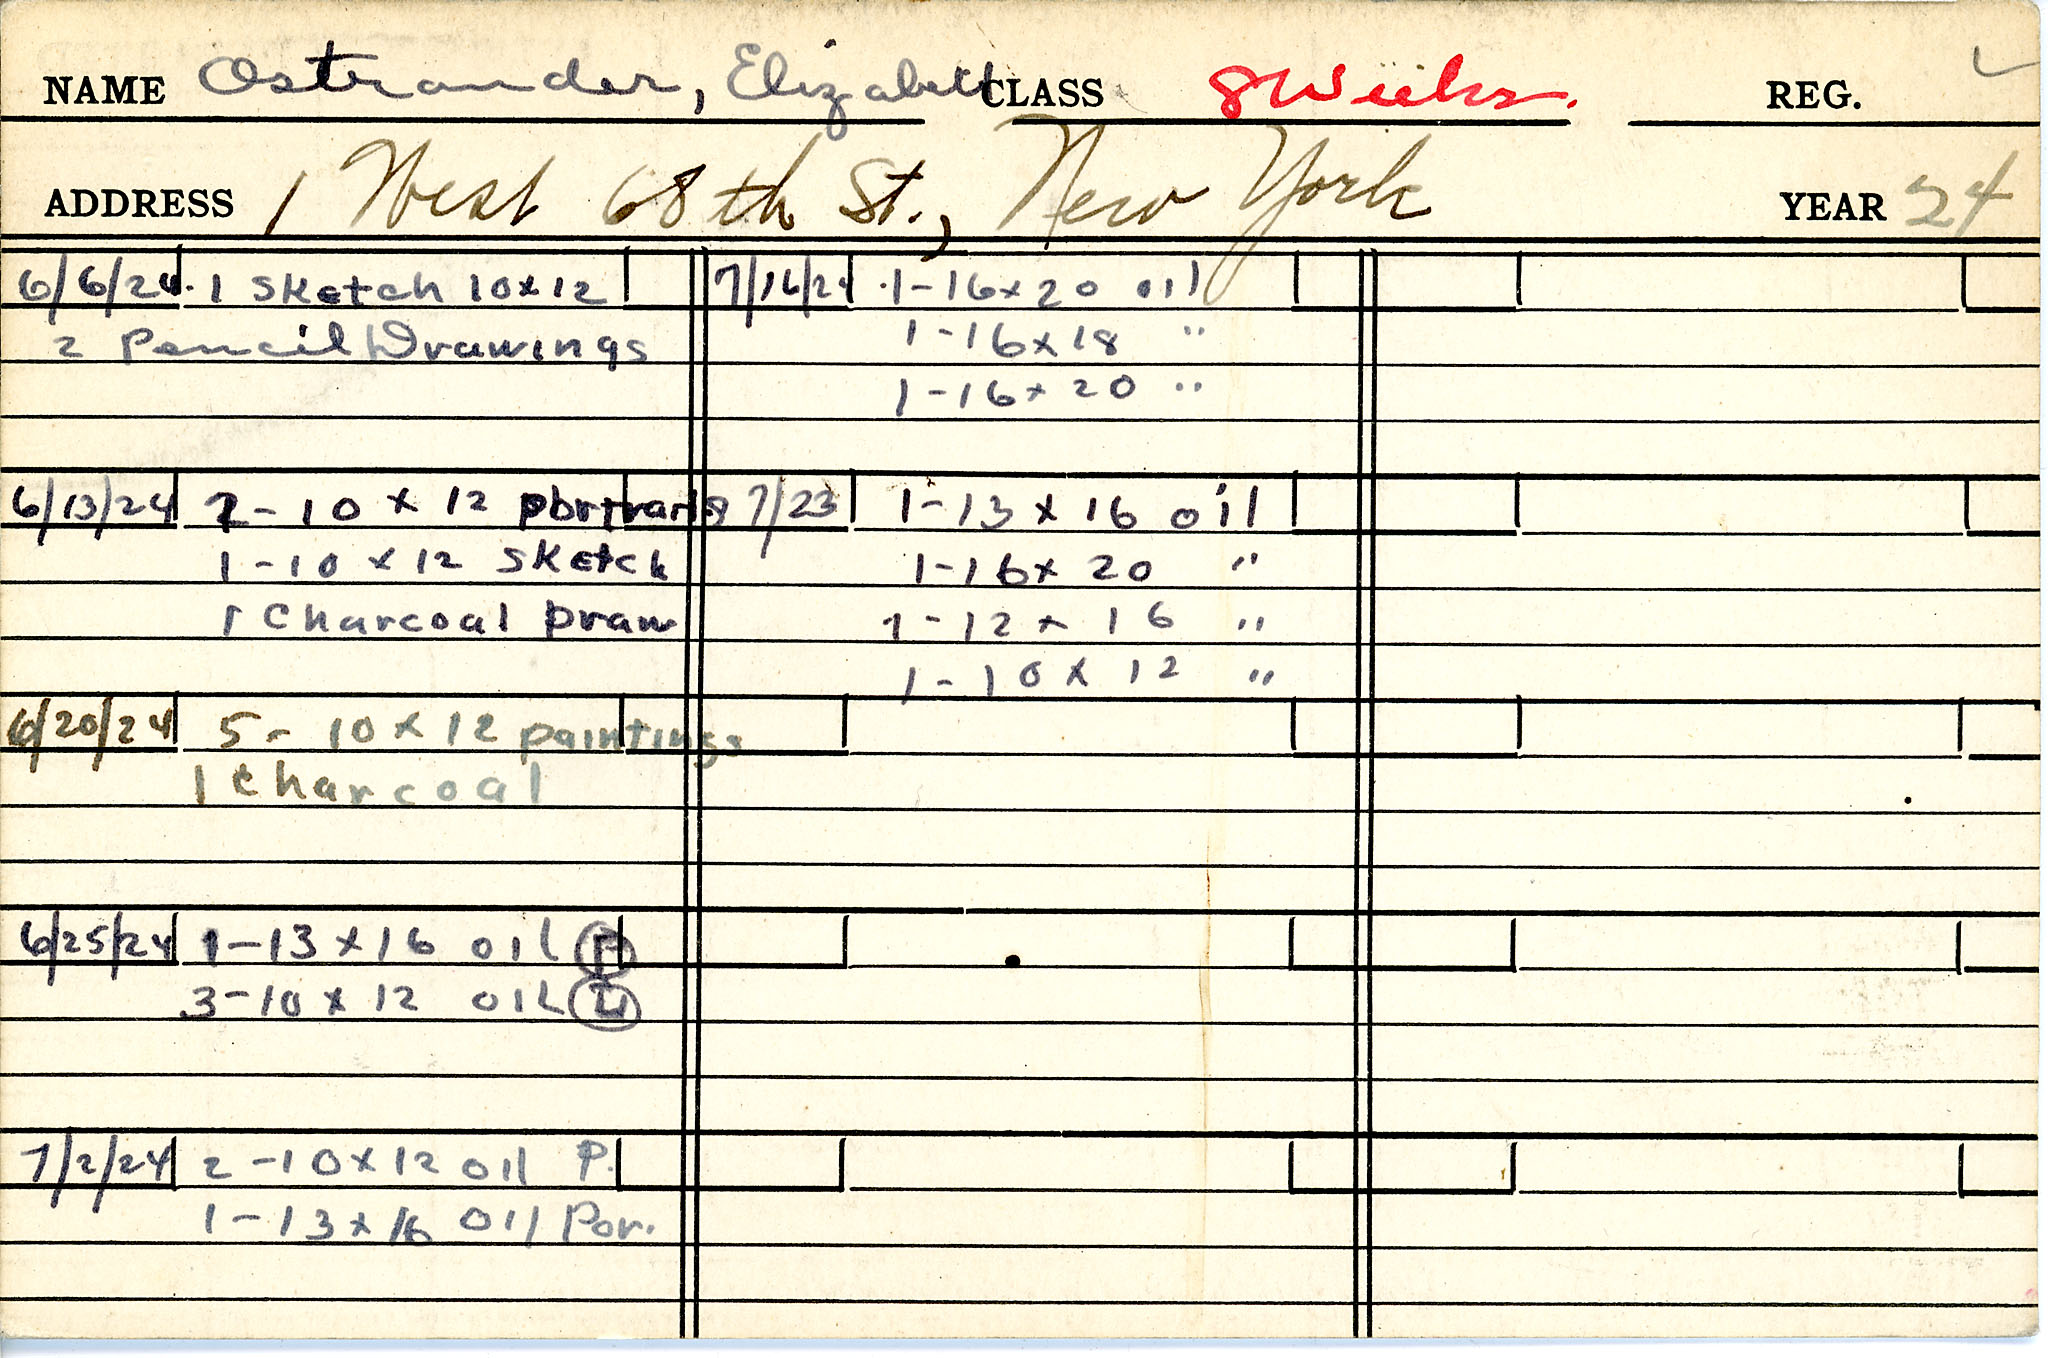 NAME Ostrander, Elizabeth CLASS 8 Weeks. REG.
ADDRESS 1 West 68th St., New York YEAR 24
6/6/24. 1 Sketch 10x12
2 Pencil Drawings
6/13/24 2-10 x 12 portraits
1-10 x 12 sketch
1 Charcoal Draw
6/20/24 5-10 x 12 paintings
1 Charcoal
6/25/24 1-13 x 16 oil P
3-10 x 12 oil
7/2/24 2-10 x 12 oil P.
1-13 x 16 oil Por.
7/16/24 1-16 x 20 oil
1-16 x 18 "
1-16 x 20 "
7/23 1-13 x 16 oil
1-16 x 20 "
1-12 x 16 "
1-10 x 12 "